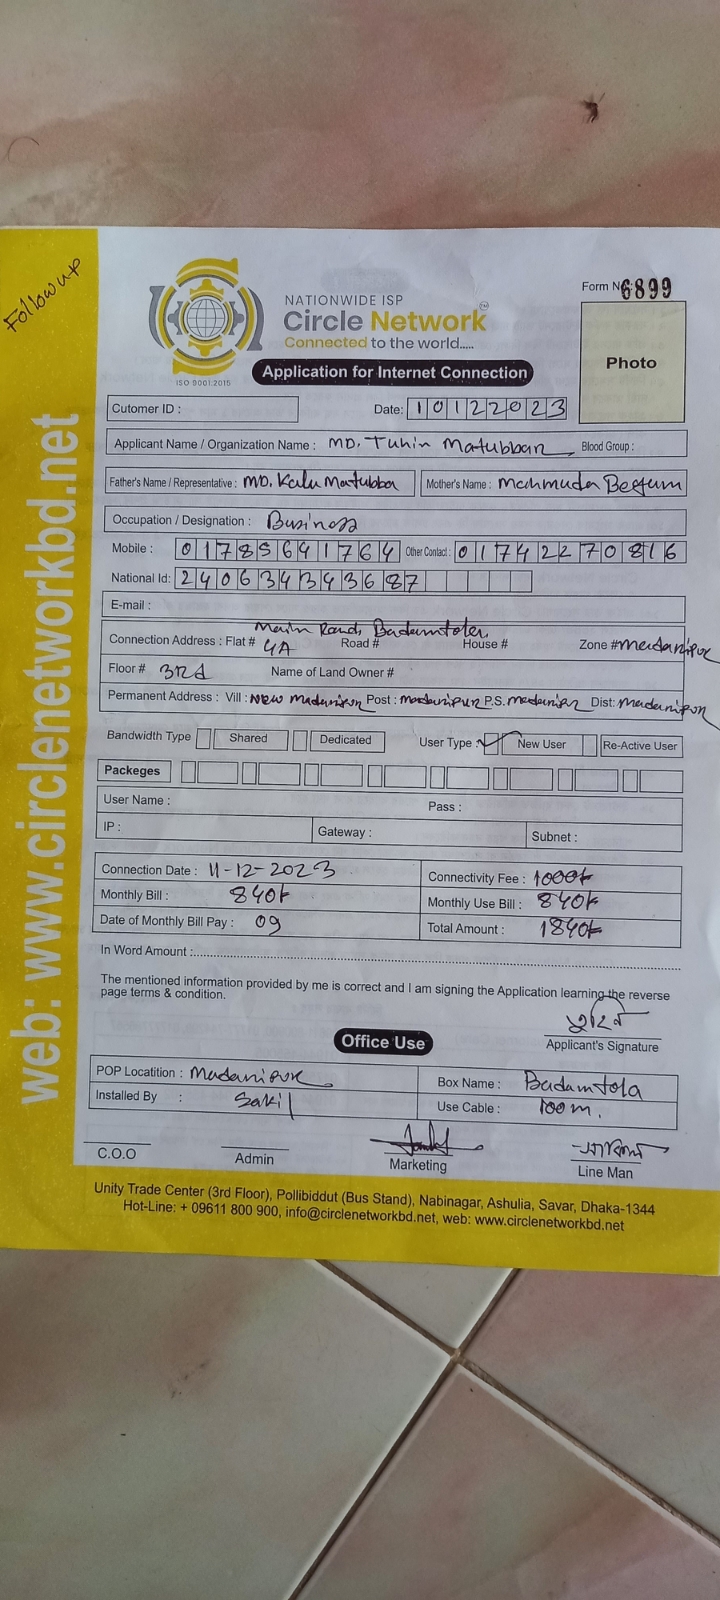 Follow up
NATIONWIDE ISP
Circle Network TM
Connected to the world.....
ISO 9001:2015
Form No: 6899
Photo
Application for Internet Connection
Cutomer ID :
Date: 10122023
Applicant Name / Organization Name : MD. Tuhin Matubbar Blood Group :
Father's Name / Representative : MD. Kalu Matubba Mother's Name : Mahmuda Begum
Occupation / Designation : Business
Mobile : 01785641764 Other Contact : 01742270816
National Id: 2406343436 87
E-mail :
Main Road, Badamtola
Connection Address : Flat # 4A Road # House # Zone # Madaripur
Floor # 3rd Name of Land Owner #
Permanent Address : Vill : New Madaripur Post : Madaripur P.S. Madaripur Dist: Madaripur
Bandwidth Type Shared Dedicated User Type : New User Re-Active User
Packeges
User Name : Pass :
IP : Gateway : Subnet :
Connection Date : 11-12-2023 Connectivity Fee : 1000/-
Monthly Bill : 840/- Monthly Use Bill : 840/-
Date of Monthly Bill Pay : 09 Total Amount : 1840/-
In Word Amount :
The mentioned information provided by me is correct and I am signing the Application learning the reverse
page terms & condition.
তুহিন
Applicant's Signature
Office Use
POP Locatition : Madaripur Box Name : Badamtola
Installed By : Sakil Use Cable : 100m.
C.O.O Admin Marketing Line Man
Unity Trade Center (3rd Floor), Pollibiddut (Bus Stand), Nabinagar, Ashulia, Savar, Dhaka-1344
Hot-Line: + 09611 800 900, info@circlenetworkbd.net, web: www.circlenetworkbd.net
web: www.circlenetworkbd.net